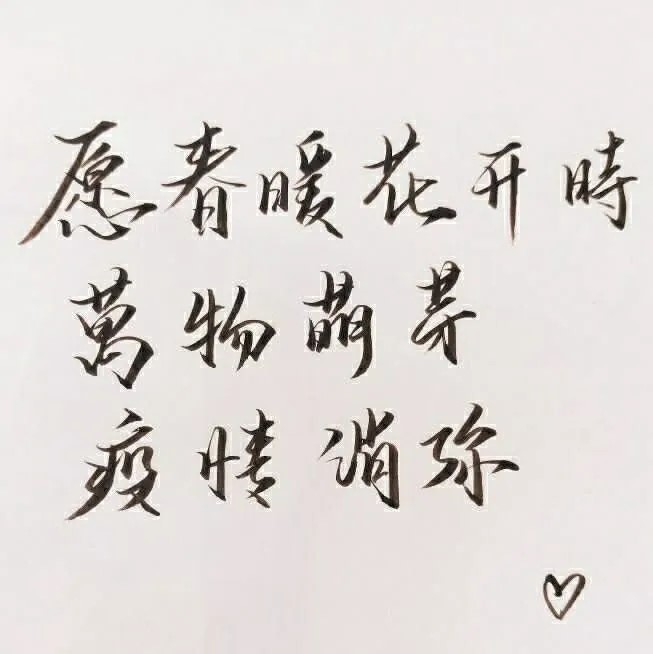 愿春暖花开時
萬物萌芽
疫情消弥